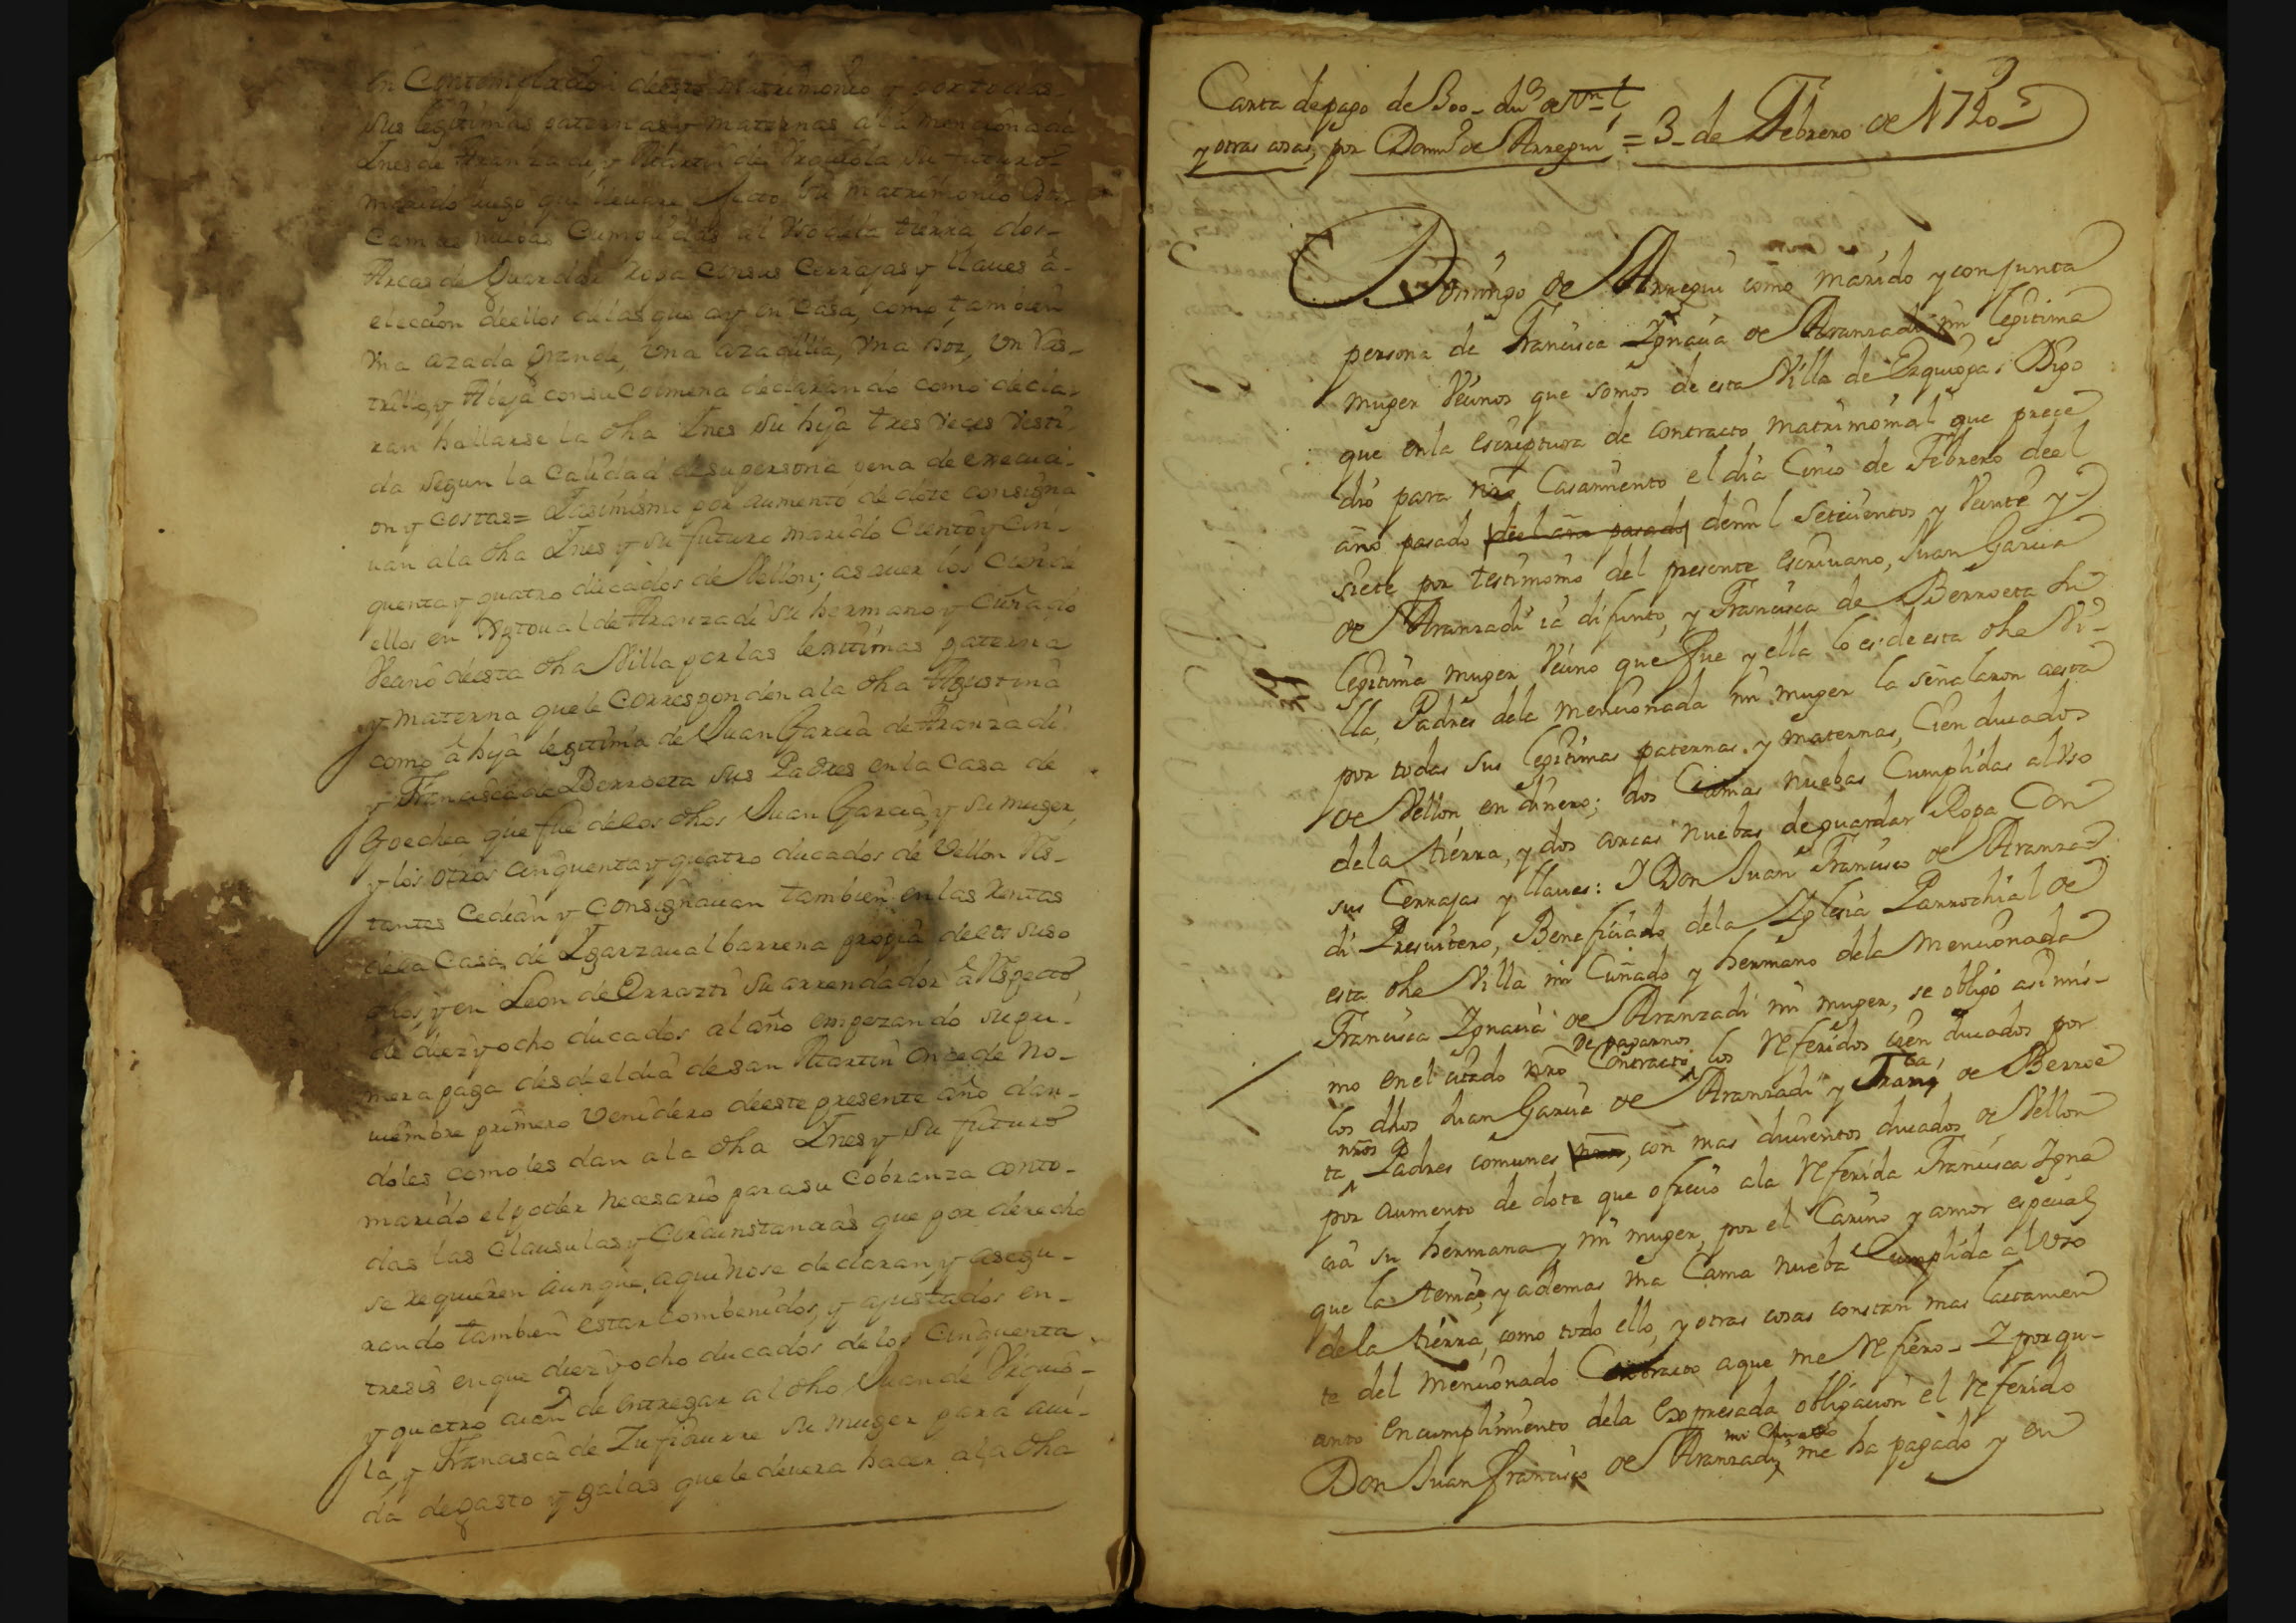 en Contemplazion deeste matrimonio y por todas
sus legitimas paternas y maternas a la mencionada
Ines de Aranzadi, y Martin de Vrquiola su futuro
marido luego que lleuare efecto este matrimonio dos
camas nuebas Cumplidas al Vso dela tierra dos
Arcas de Guardar ropa con sus Cerrajas y llaues â
elecion deellos delas que ay en Casa, como tambien
vna azada grande, vna azadilla, vna hoz, vn ras-
trillo, y Abeja con su Colmena declarando como decla-
ran hallarse la dha Ines su hija tres veces Vesti-
da segun la Calidad de su persona pena de execuci-
on y costas= Assimismo por aumento de dote consigna
uan ala dha Ines y su futuro marido Ciento y Cin-
quenta y quatro ducados de Vellon; asauer los Cien de
ellos en de Aranzadi su hermano y Cuñado
Vecino deesta dha Villa por las lexitimas paterna
y materna que le Corresponden a la dha Agustina
como â hija legitima de Juan Garcia de Aranzadi
y Francisca de Berroeta sus Padres en la Casa de
Goechea que fue delos dhos Juan Garcia, y su muger,
y los otros cinquenta y quatro ducados de Vellon res-
tantes Cedian y Consignauan tambien en las rentas
dela Casa de Igarzaualbarrena propia delos suso
dhos, y en Leon de Orrazti su arrendador â respecto
de diez y ocho ducados al año empezando su pri-
mera paga desde el dia de san Martin once de No-
uiembre primero venidero deeste presente año dan-
doles como les dan a la dha Ines y su futuro
marido el poder necesario para su Cobranza conto-
das las Clausulas y Circunstancias que por derecho
se requieren aunque aqui no se declaran, y asegu-
rando tambien estar combenidos, y ajustados en-
tresi en que diez y ocho ducados delos Cinquenta
y quatro aian de entregar al dho Juan de Vrquio-
la, y Francisca de su muger para aiu-
da de gasto y galas que le deuera hacer a la dha
Carta depago de 300 duos de Vn
y otras cosas, por Domo de Arregui = 3 de Febrero de 172
Domingo de Arregui como marido y conjunta
persona de Francisca Ygnacia de Aranzadi mi legitima
muger Vecinos que somos de esta Villa de Ezquioga: Digo
que enla escriptura de contracto matrimonial que prece
dio para nro Casamiento el dia Cinco de Febrero deel
año pasado deel año pasado demil setecientos y Veinte y
siete por testimonio del presente escriuano, Juan Garcia
de Aranzadi ia difunto, y Francisca de Berroeta su
legitima muger Vecino que fue y ella lo es de esta dha Vi-
lla, Padres dela mencionada mi muger la señalaron aesta
por todas sus legitimas paternas y maternas, Cien ducados
de Vellon en dinero; dos Camas nuebas Cumplidas al Vso
dela tierra, y dos arcas nuebas deguardar Ropa Con
sus Cerrajas y llaues: Y Don Juan Francisco de Aranza-
di Presuitero, Beneficiado dela Yglesia Parrochial de
esta dha Villa mi Cuñado y hermano dela mencionada
Francisca Ygnacia de Aranzadi mi muger, se obligó asimis-
mo enel citado nro Contracto de pagarnos los referidos cien ducados por
los dhos Juan Garcia de Aranzadi y Franca de Berroe
ta nros Padres comunes nros, con mas ducientos ducados de Vellon
por aumento de dote que ofrecio ala referida Francisca Ygna
cia su hermana y mi muger, por el Cariño y amor especial
que la tenia, y ademas vna Cama nueba Cumplida al Vso
dela tierra, como todo ello, y otras cosas constan mas lactamen
te del mencionado Contracto aque me refiero- Y porqu-
anto encumplimiento dela expresada obligacion el referido
Don Juan Francisco de Aranzadi mi Cuñado me ha pagado y en